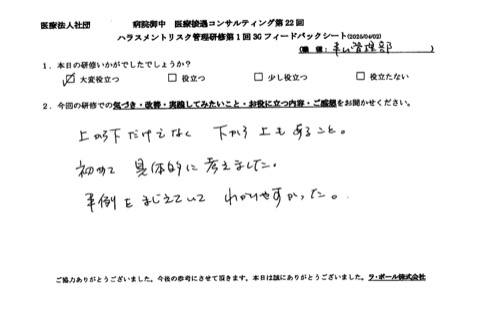 医療法人社団 病院御中 医療接遇コンサルティング第22回
ハラスメントリスク管理研修第1回3Gフィードバックシート(2025/04/02)
(職種: 管理部)
1.本日の研修いかがでしたでしょうか?
☑大変役立つ □役立つ □少し役立つ □役立たない
2.今回の研修での気づき・改善・実践してみたいこと・お役に立つ内容・ご感想をお聞かせください。
上から下だけでなく 下から上もあること。
初めて 具体的に考えました。
事例をまじえていて わかりやすかった。
ご協力ありがとうございました。今後の参考にさせて頂きます。本日は誠にありがとうございました。ラ・ポール株式会社